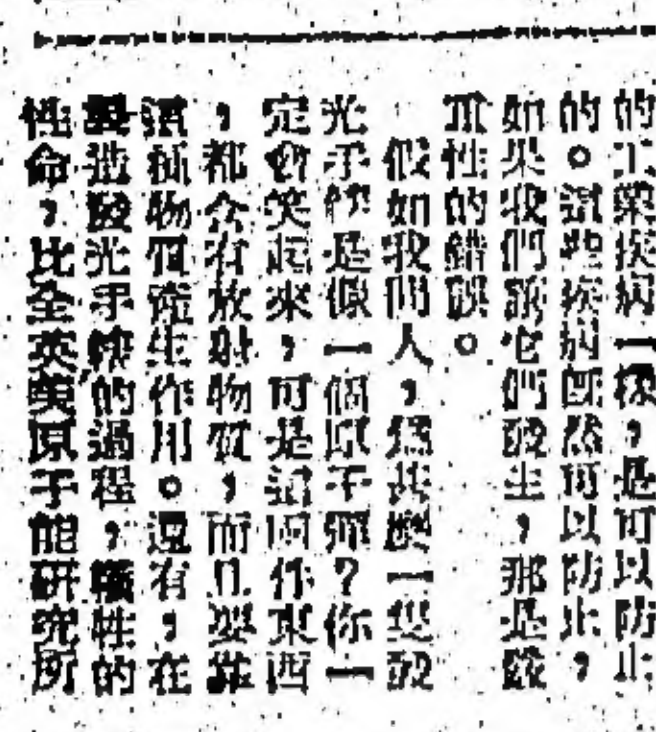 的工業疾病一樣，是可以防止
的。這些疾病既然可以防止，
如果我們讓它們發生，那是嚴
重性的錯誤。
假如我問人，爲甚麼一隻發
光手錶是像一個原子彈？你一
定會笑起來，可是這兩件東西
，都含有放射物質，而且要靠
這種物質產生作用。還有，在
製造發光手錶的過程，犧牲的
性命，比全英美原子能研究所